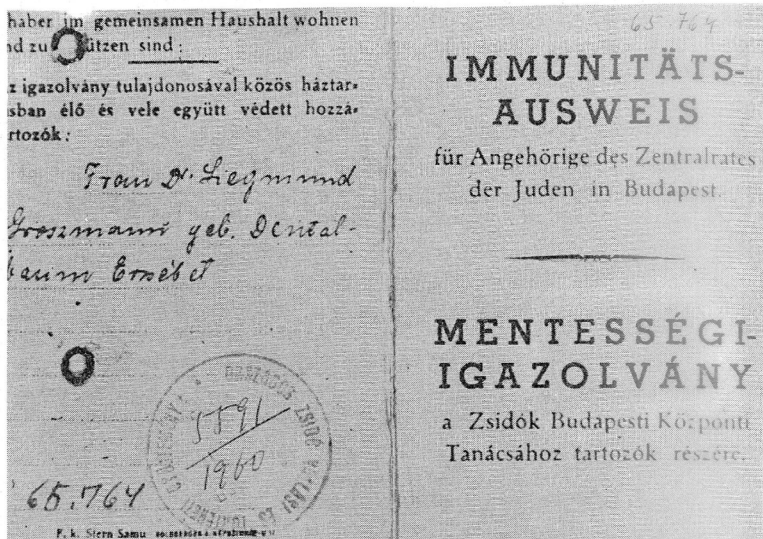 haber im gemeinsamen Haushalt wohnen
nd zu ützen sind:
z igazolvány tulajdonosával közös háztar-
sban élő és vele együtt védett hozzá-
rtozók:
Frau Dr. Siegmund
Groszmann geb. Dental-
baum Erzsébet
ORSZÁGOS ZSIDÓ VALLÁSI ÉS TÖRTÉNETI GYŰJTEMÉNY
5591
1960
65.764
F. k. Stern Samu
65 764
IMMUNITÄTS-
AUSWEIS
für Angehörige des Zentralrates
der Juden in Budapest.
MENTESSÉGI-
IGAZOLVÁNY
a Zsidók Budapesti Központi
Tanácsához tartozók részére.